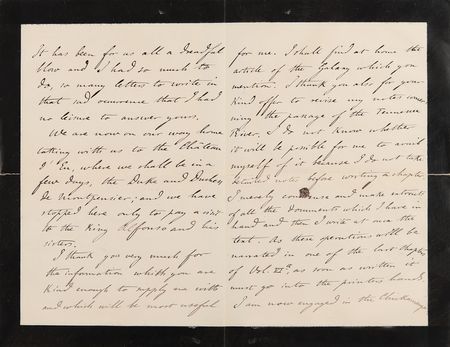 It has been for us all a dreadful
blow and I had so much to
do, so many letters to write in
that sad occurrence that I had
no leisure to answer yours.
We are now on our way home
taking with us to the Château
d'Eu, where we shall be in a
few days, the Duke and Duchess
de Montpensier; and we have
stopped here only to pay a visit
to the King Alfonso and his
sisters.
I thank you very much for
the information which you are
kind enough to supply me with
and which will be most useful
for me. I shall find at home the
article of the Galaxy which you
mention. I thank you also for your
kind offer to revise my notes concer-
ning the passage of the Tennessee
River. I do not know whether
it will be possible for me to avail
myself of it because I do not take
detailed notes before writing a chapter,
I merely condense and make extracts
of all the documents which I have in
hand and then I write at once the
text. As these operations will be
narrated in one of the last chapters
of Vol. as soon as written it
must go into the printers hands.
I am now engaged in the Chickamauga